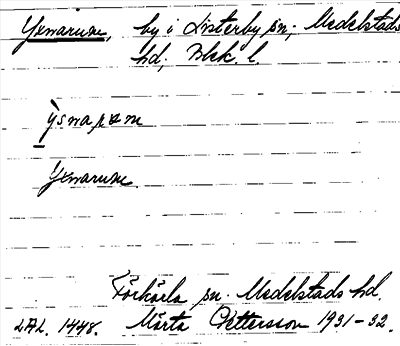 Yxnarum, by i Listerby sn, Medelstads
hd, Blek. l.
Yxnarum.
Förkärla sn. Medelstads hd.
LAL. 1448. Märta Pettersson 1931-32.